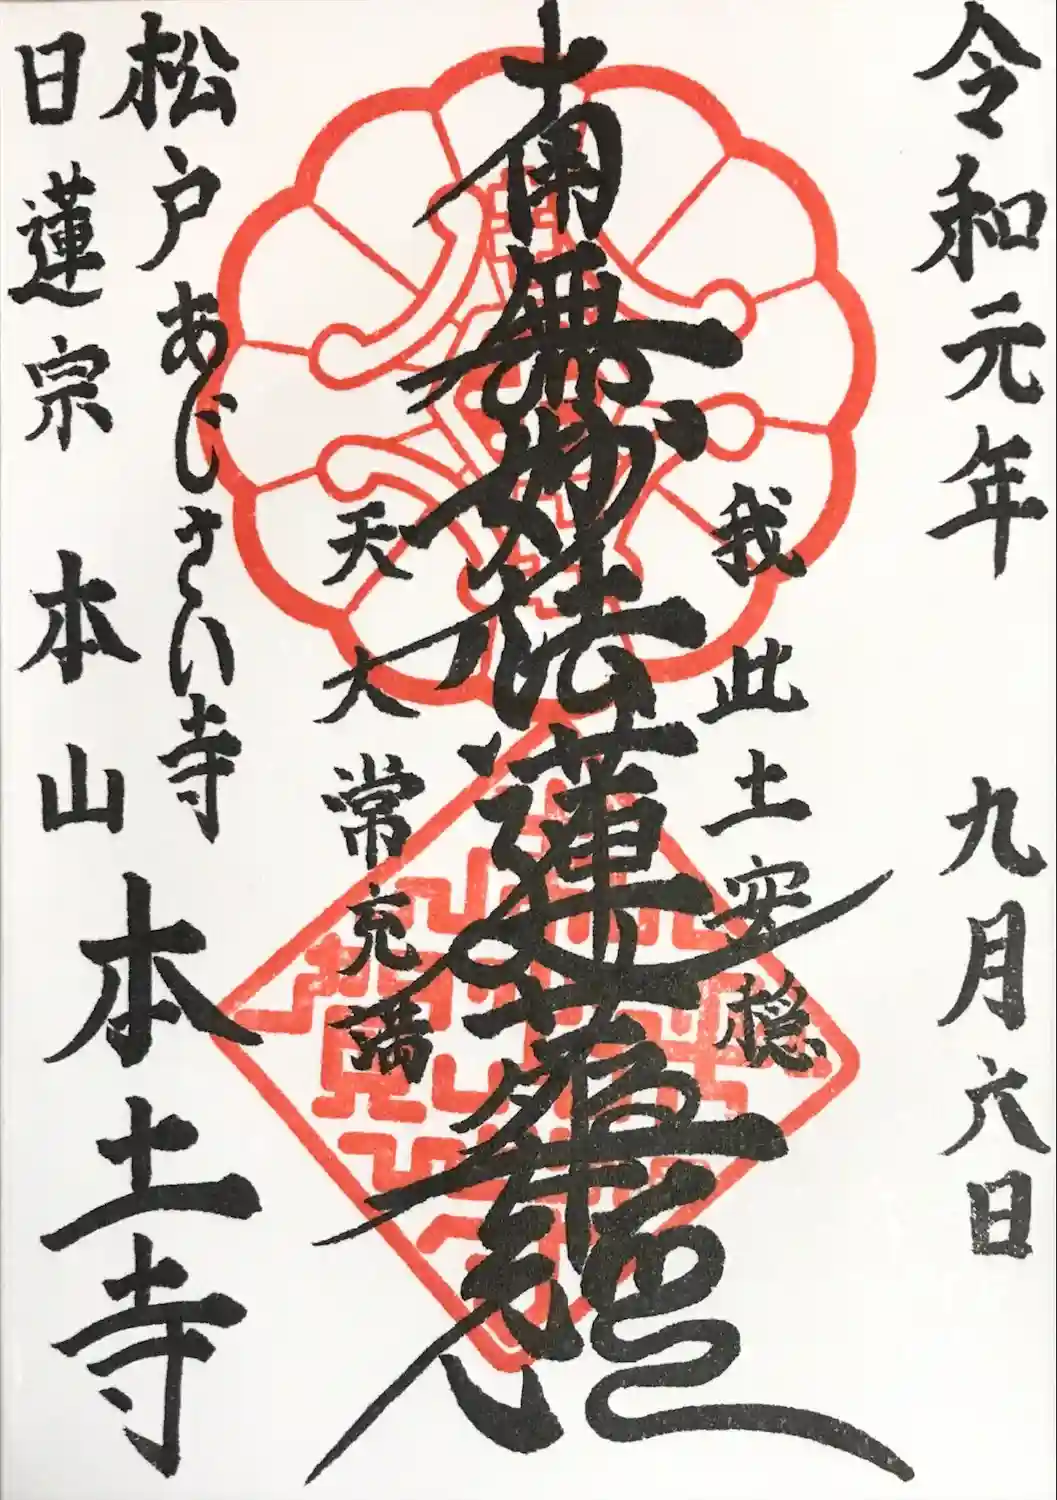 令和元年 九月六日
我此土安穏
南無妙法蓮華経
天人常充満
松戸あじさい寺
日蓮宗 本山 本土寺